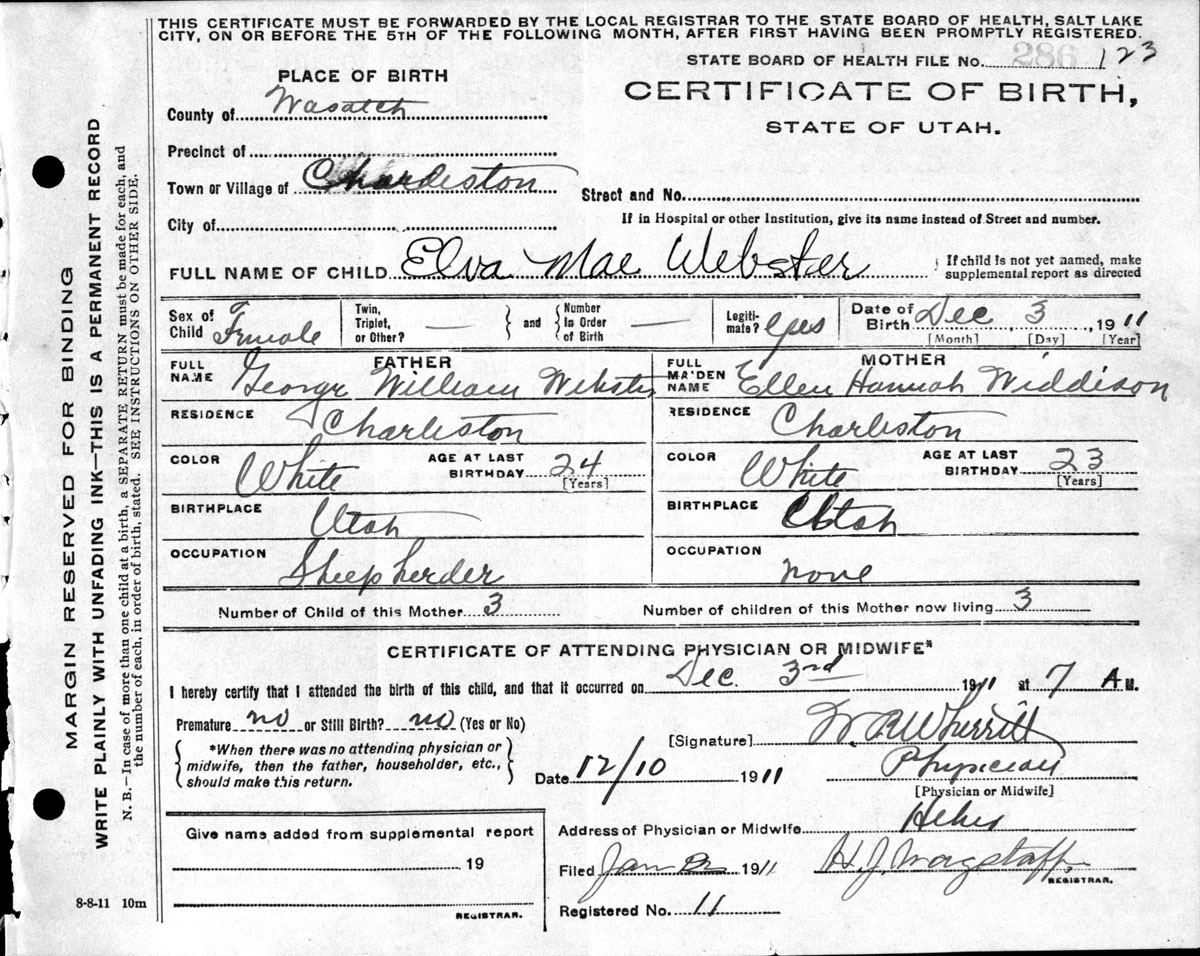 THIS CERTIFICATE MUST BE FORWARDED BY THE LOCAL REGISTRAR TO THE STATE BOARD OF HEALTH, SALT LAKE
CITY, ON OR BEFORE THE 5TH OF THE FOLLOWING MONTH, AFTER FIRST HAVING BEEN PROMPTLY REGISTERED.
STATE BOARD OF HEALTH FILE No. 286 123
PLACE OF BIRTH
CERTIFICATE OF BIRTH,
STATE OF UTAH.
County of Wasatch
Precinct of
Town or Village of Charleston
Street and No.
City of
If in Hospital or other Institution, give its name instead of Street and number.
FULL NAME OF CHILD Elva Mae Webster
If child is not yet named, make
supplemental report as directed
Sex of Child Female
Twin, Triplet, or Other? —
and
Number In Order of Birth —
Legitimate? yes
Date of Birth Dec 3, 1911
[Month] [Day] [Year]
FATHER
FULL NAME George William Webster
MOTHER
FULL MAIDEN NAME Ellen Hannah Widdison
RESIDENCE Charleston
RESIDENCE Charleston
COLOR White AGE AT LAST BIRTHDAY 24 [Years]
COLOR White AGE AT LAST BIRTHDAY 23 [Years]
BIRTHPLACE Utah
BIRTHPLACE Utah
OCCUPATION Sheepherder
OCCUPATION none
Number of Child of this Mother 3
Number of children of this Mother now living 3
CERTIFICATE OF ATTENDING PHYSICIAN OR MIDWIFE*
I hereby certify that I attended the birth of this child, and that it occurred on Dec. 3rd 1911 at 7 A M.
Premature no or Still Birth? no (Yes or No)
*When there was no attending physician or
midwife, then the father, householder, etc.,
should make this return.
[Signature] W.R. Wherritt
Date 12/10 1911
Physician
[Physician or Midwife]
Give name added from supplemental report
19
REGISTRAR.
Address of Physician or Midwife Heber
Filed Jan 1911 H. J. Wagstaff
REGISTRAR.
Registered No. 11
8-8-11 10m
MARGIN RESERVED FOR BINDING
WRITE PLAINLY WITH UNFADING INK—THIS IS A PERMANENT RECORD
N. B.—In case of more than one child at a birth, a SEPARATE RETURN must be made for each, and
the number of each, in order of birth, stated. SEE INSTRUCTIONS ON OTHER SIDE.